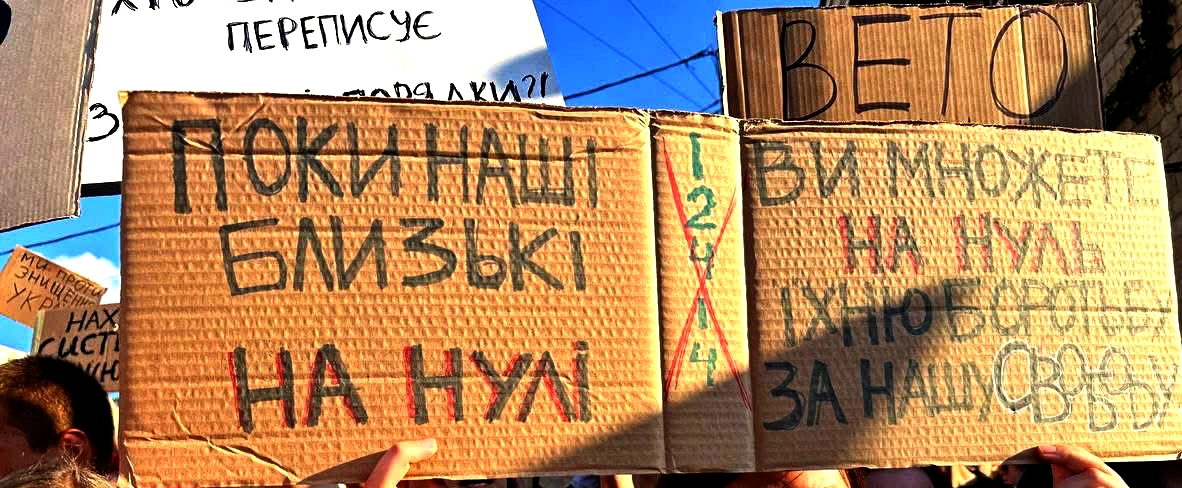 ПЕРЕПИСУЄ
ВЕТО
ПОКИ НАШІ
БЛИЗЬКІ
НА НУЛІ
12414
ВИ МНОЖЕТЕ
НА НУЛЬ
ЇХНЮ БОРОТЬБУ
ЗА НАШУ СВОБОДУ
МИ ПРОТИ
ЗНИЩЕННЯ
УКР
НАХ
СИСТ